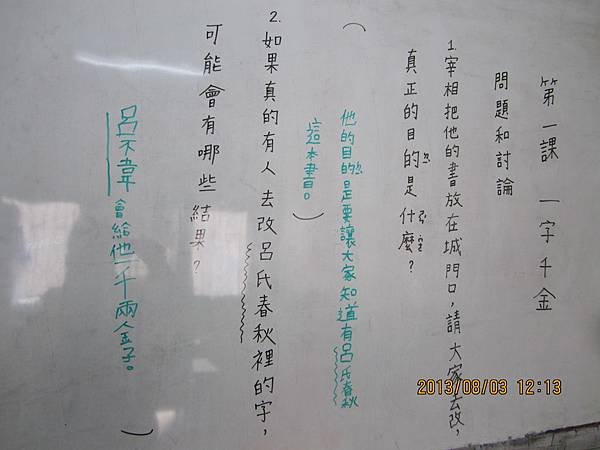 第一課 一字千金
問題和討論
1.宰相把他的書放在城門口,請大家去改,
真正的目的是什麼?
(他的目的是要讓大家知道有呂氏春秋
這本書。)
2.如果真的有人去改呂氏春秋裡的字,
可能會有哪些結果?
呂不韋會給他一千兩金子。)
2013/08/03 12:13